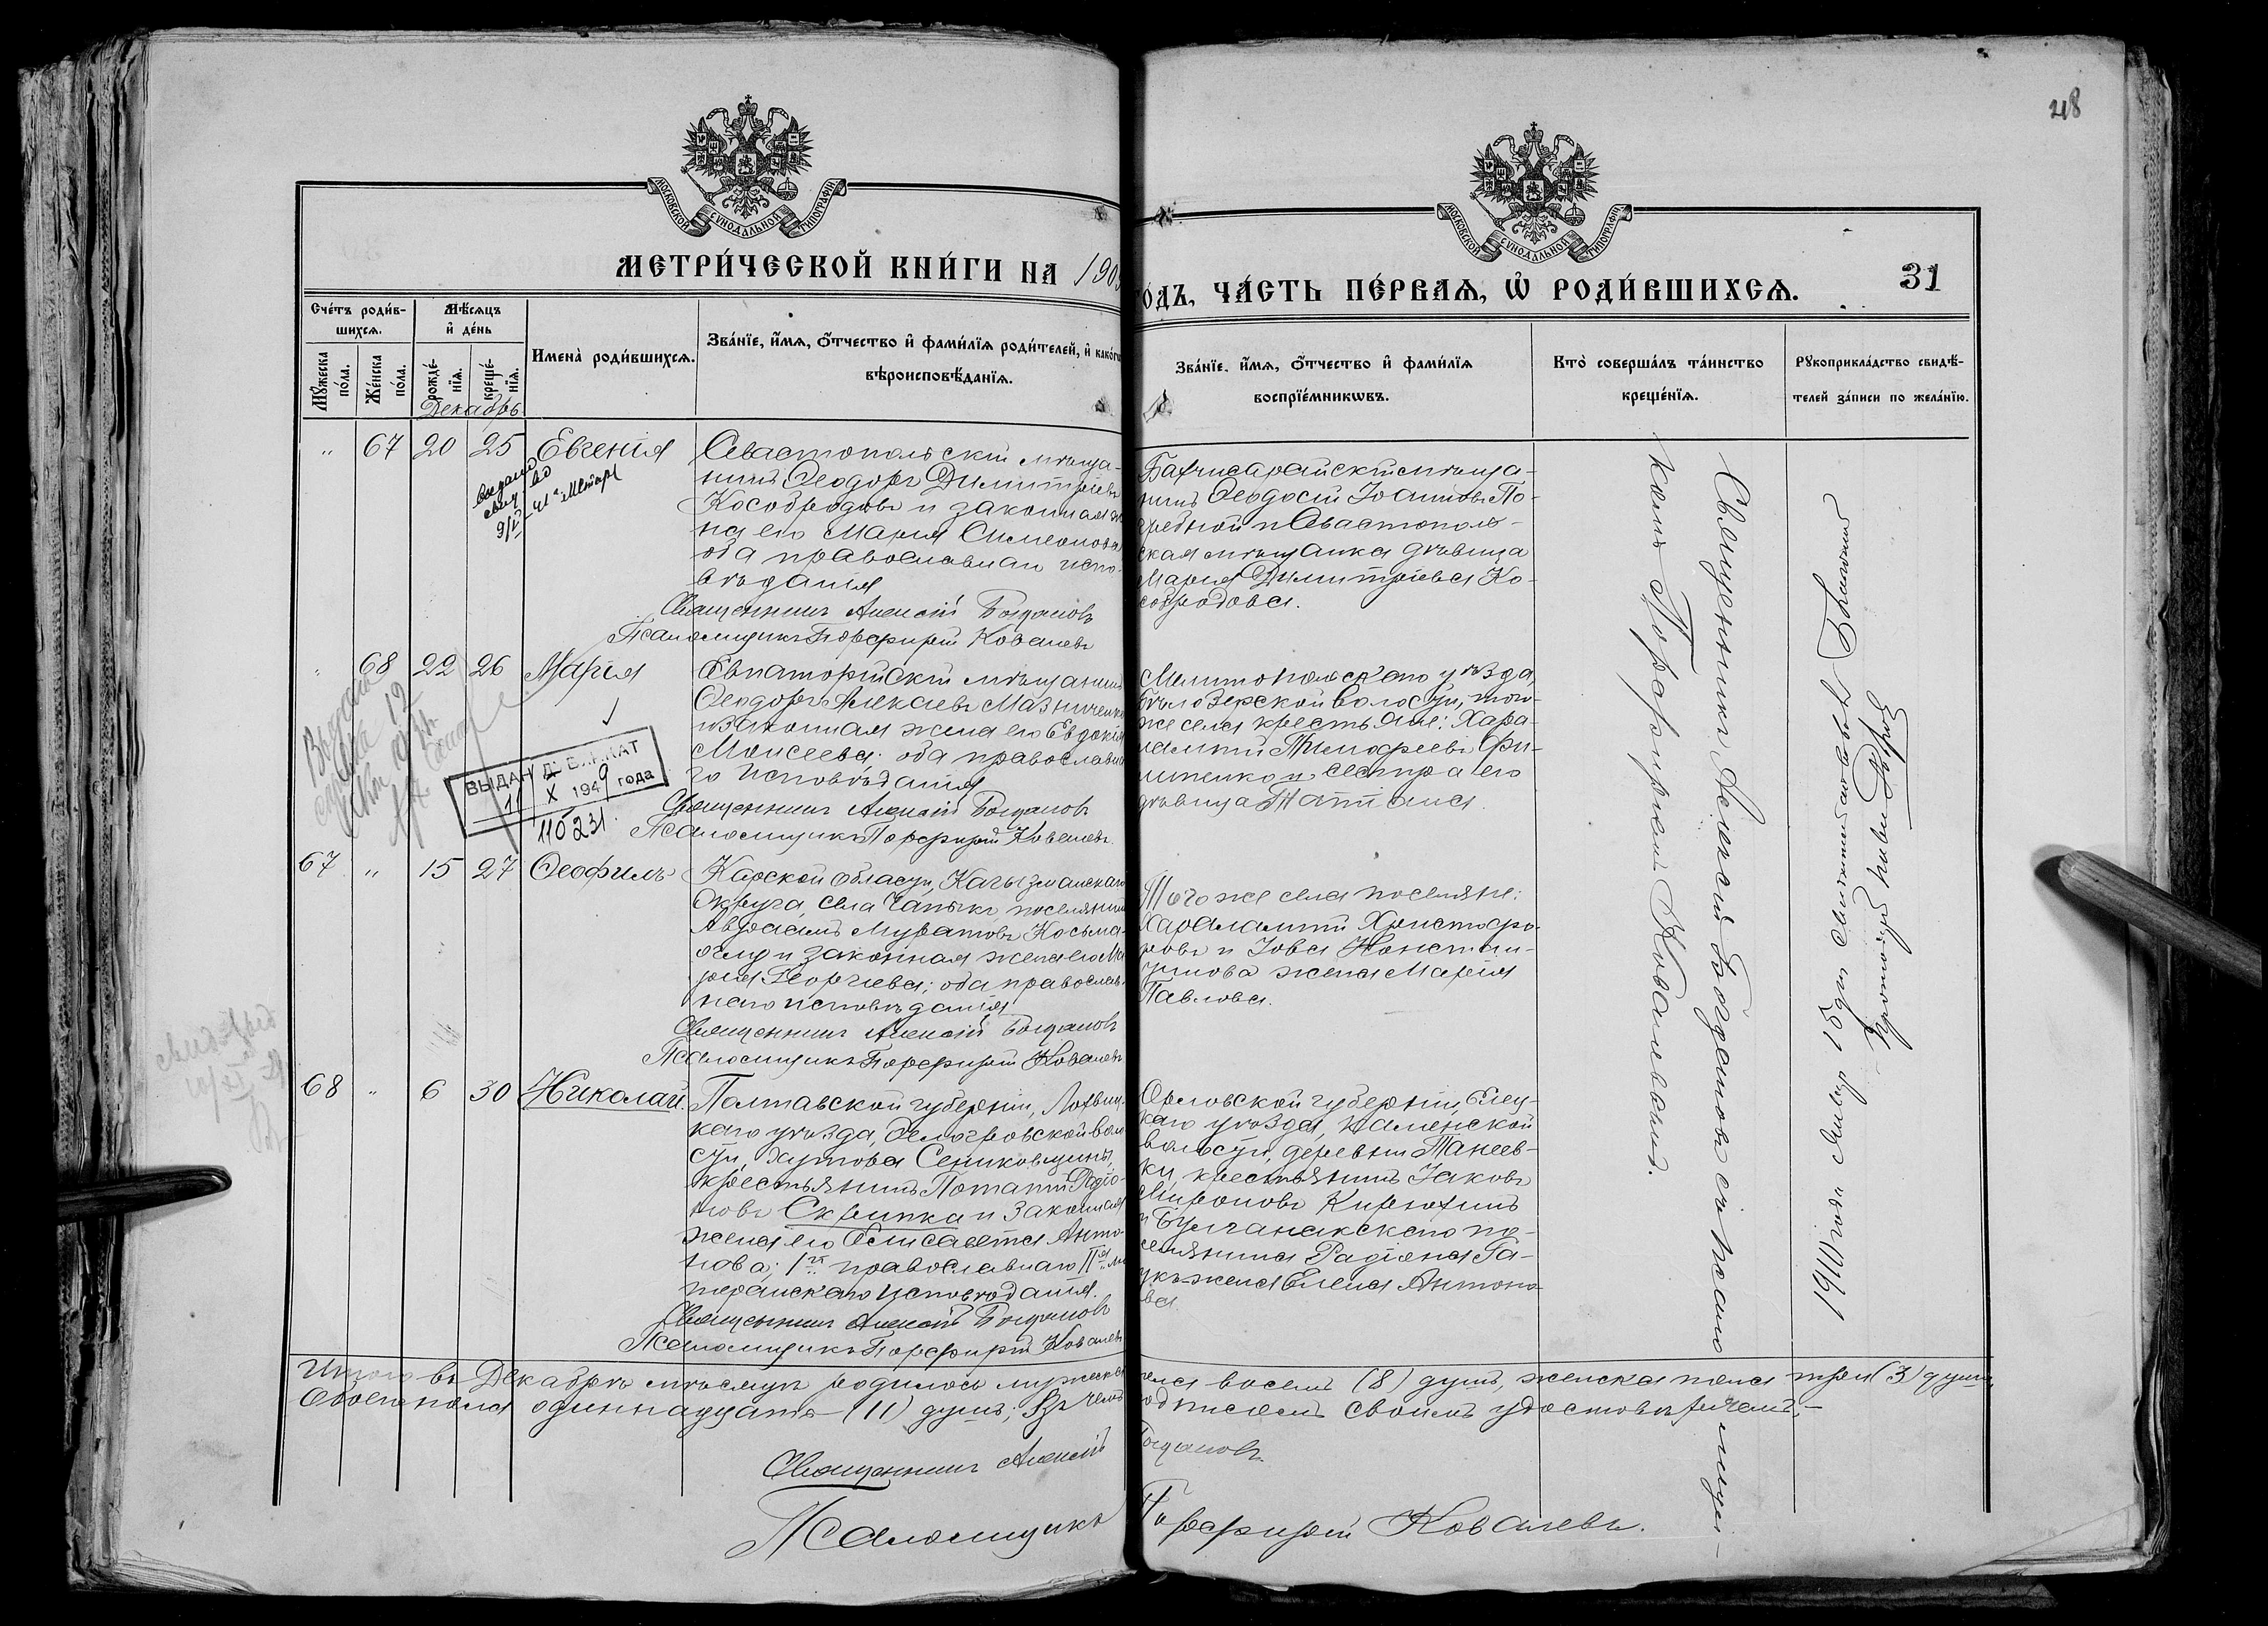 48
МОСКОВСКОЙ СѴНОДАЛЬНОЙ ТИПОГРАФІИ
МОСКОВСКОЙ СѴНОДАЛЬНОЙ ТИПОГРАФІИ
МЕТРИ́ЧЕСКОЙ КНИ́ГИ НА 1909
ГО́ДЪ, ЧА́СТЬ ПЕ́РВАѦ, Ѡ РОДИ́ВШИХСѦ.
31
Сче́тъ роди́в-
шихсѧ.
Мѣ́сѧцъ
и де́нь
Мꙋ́жеска
по́ла.
Же́нска
по́ла.
рожде́-
нїѧ.
креще́-
нїѧ.
Имена̀ роди́вшихсѧ.
Зва́нїе, и́мѧ, ѻ́тчество и фами́лїѧ роди́телей, и како́гѡ
вѣроисповѣ́данїѧ.
Зва́нїе, и́мѧ, ѻ́тчество и фами́лїѧ
воспрїе́мникѡвъ.
Кто̀ соверша́лъ та́инство
креще́нїѧ.
Рꙋкоприкла́дство свидѣ́-
телей за́писи по жела́нїю.
Декабрь
" 67 20 25 Евгенія
Севастопольскій мѣща-
нинъ Ѳеодоръ Димитріевъ
Кособродовъ и законная же-
на его Марія Симеонова
оба православнаго испо-
вѣданія
Священникъ Алексій Богдановъ
Псаломщикъ Порфирій Ковалевъ
Бахчисарайскій мѣща-
нинъ Ѳеодосій Іоанновъ По-
гребной и Севастополь-
ская мѣщанка дѣвица
Марія Димитріева Ко-
собродова.
" 68 22 26 Марія
Евпаторійскій мѣщанинъ
Ѳеодоръ Мазниченко
и законная жена его Евдокія
Моисеева; оба православна-
го исповѣданія
Священникъ Алексій Богдановъ
Псаломщикъ Порфирій Ковалевъ.
Мелитопольскаго уѣзда,
Бѣлозерской волости, того-
же села крестьяне: Хара-
лампій Тимофеевъ Фи-
липенко и сестра его
дѣвица Татіана.
ВЫДАН ДУБЛИКАТ
11 X 1949 года
110231.
67 " 15 27 Ѳеофилъ
Карской области, Кагызманскаго
Округа, села Чапыкъ поселянинъ
Авраамъ Муратовъ Косьма-
оглу и законная жена его Ма-
рія Георгіева; оба православ-
наго исповѣданія
Священникъ Алексій Богдановъ
Псаломщикъ Порфирій Ковалевъ
Того же села поселяне:
Харалампій Христофо-
ровъ и Іова Констан-
тинова жена Марія
Павлова.
68 " 6 30 Николай.
Полтавской губерніи, Лохвиц-
каго уѣзда, воло-
сти, хутора Сениковщины,
крестьянинъ Потапій Родіо-
новъ Скрипка и законная
жена его Елисавета Анто-
нова; 1й православнаго IIя лю-
теранскаго исповѣданія.
Священникъ Алексій Богдановъ
Псаломщикъ Порфирій Ковалевъ
Орловской губерніи, Елец-
каго уѣзда, Каменской
волости, деревни Танеев-
ки, крестьянинъ Іаковъ
Мироновъ Кирюхинъ
и Булганакскаго по-
селянина Радіона Га-
жена Елена Антоно-
ва.
Священникъ Алексій Богдановъ съ псалом щи-
комъ Порфиріемъ Ковалевымъ.
1910 года Январ 18 дня
Итого въ Декабрѣ мѣсяцѣ родилось мужска пола восемь (8) душъ, женска пола три (3) души,
Обоего пола одиннадцать (11) душъ; въ чемъ подписомъ своимъ удостовѣряемъ.—
Священникъ Алексій Богдановъ
Псаломщикъ Порфирій Ковалевъ.